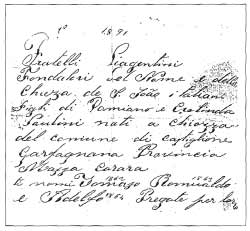 1891
Fratelli Piagentini
Fondatori del Nome e della
Chieza de S. João italiani
Figli di Damiano e Ermlinda
Paulini nati a Chiozza
del comune di Castiglione
Garfagnana Provincia
Mazza Carara
e nomi Tomazo Romualdo
e Adelfo Pregate per loro